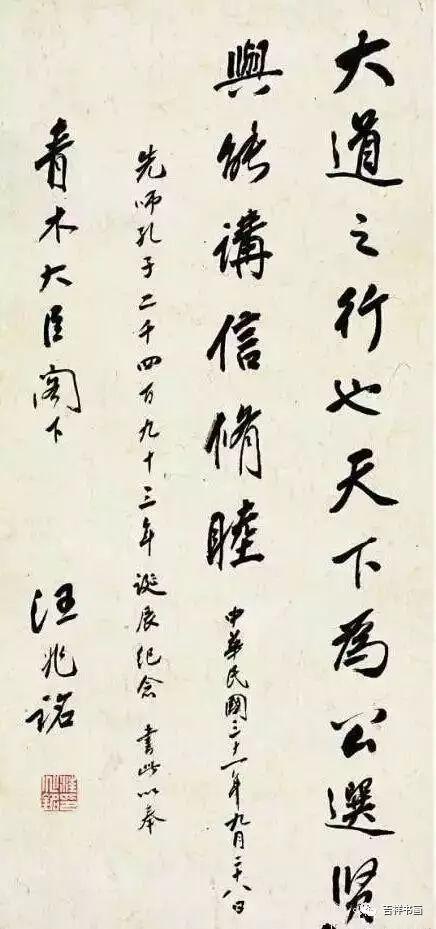 大道之行也天下為公選賢
與能講信脩睦
中華民國三十一年九月二十八日
先师孔子二千四百九十三年誕辰纪念 書此以奉
青木大臣阁下
汪兆銘
汪兆銘
吉祥书画